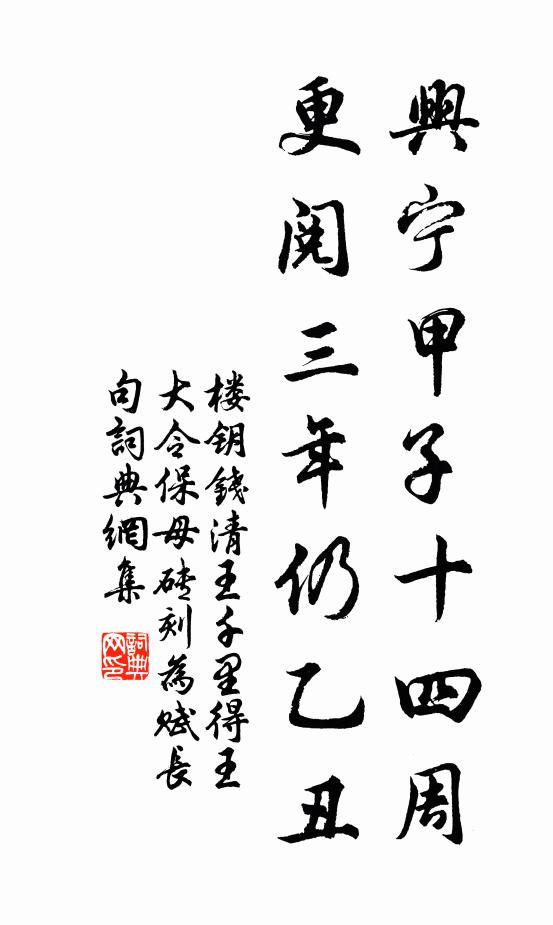 興宁甲子十四周
更閱三年仍乙丑
楼钥錢清王千里得王
大令保母砖刻為赋長
句詞典網集
詞典网印